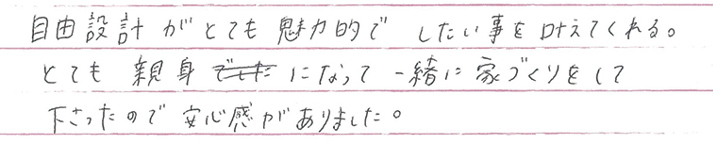 自由設計がとても魅力的で したい事を叶えてくれる。
とても 親身 になって 一緒に 家づくりをして
下さったので 安心感がありました。